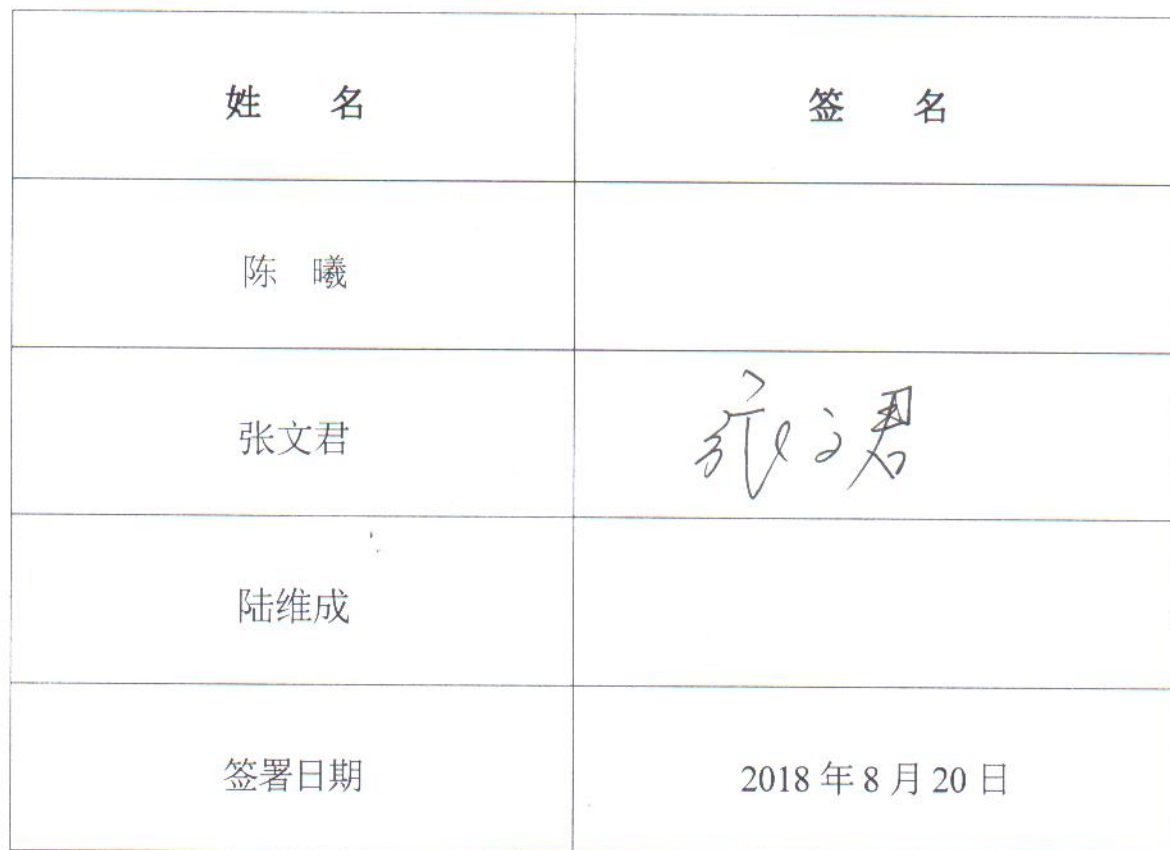 姓 名 签 名
陈 曦
张文君 张文君
陆维成
签署日期 2018 年 8 月 20 日